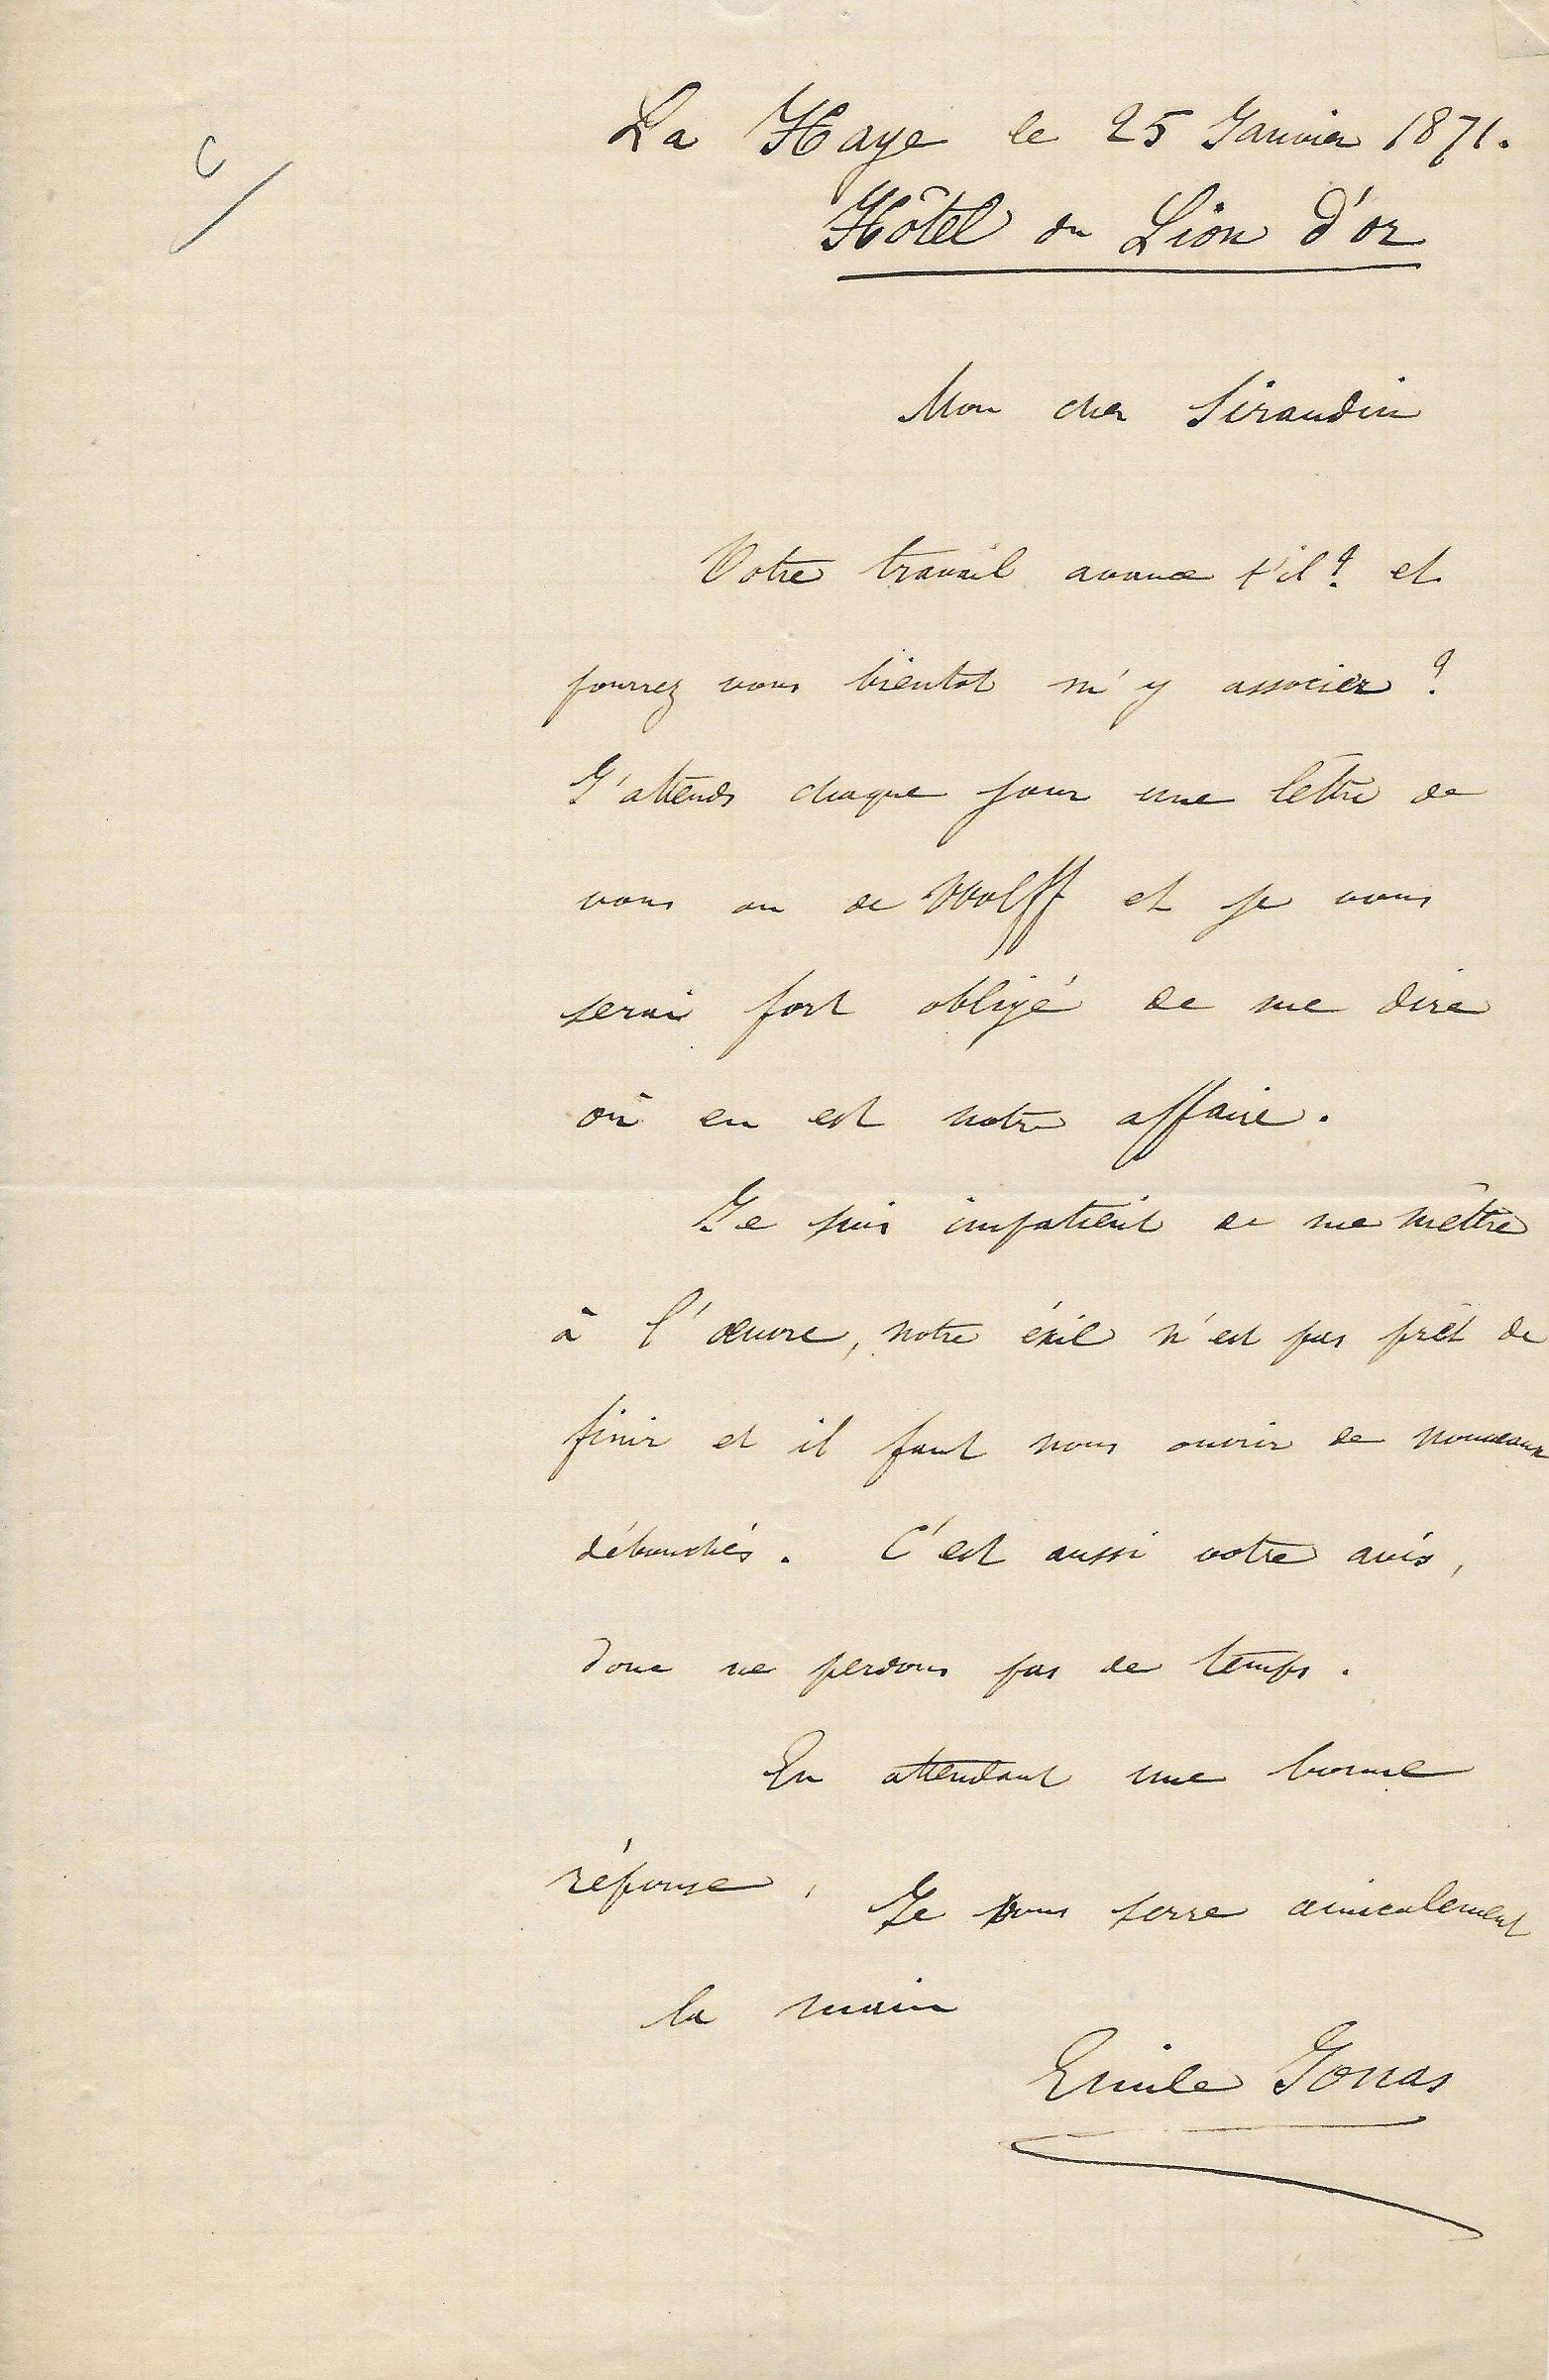 La Haye le 25 Janvier 1871.
Hôtel du Lion d'or
Mon cher Siraudin
Votre travail avance t'il? et
pourrez vous bientot m'y associer?
J'attends chaque jour une lettre de
vous ou de Wolff et je vous
serai fort obligé de me dire
où en est notre affaire.
Je suis impatient de me mettre
à l'œuvre, notre éxil n'est pas prêt de
finir et il faut nous ouvrir de nouveaux
débouchés. C'est aussi votre avis,
donc ne perdons pas de temps.
En attendant une bonne
réponse,
Je vous serre amicalement
la main
Emile Jonas